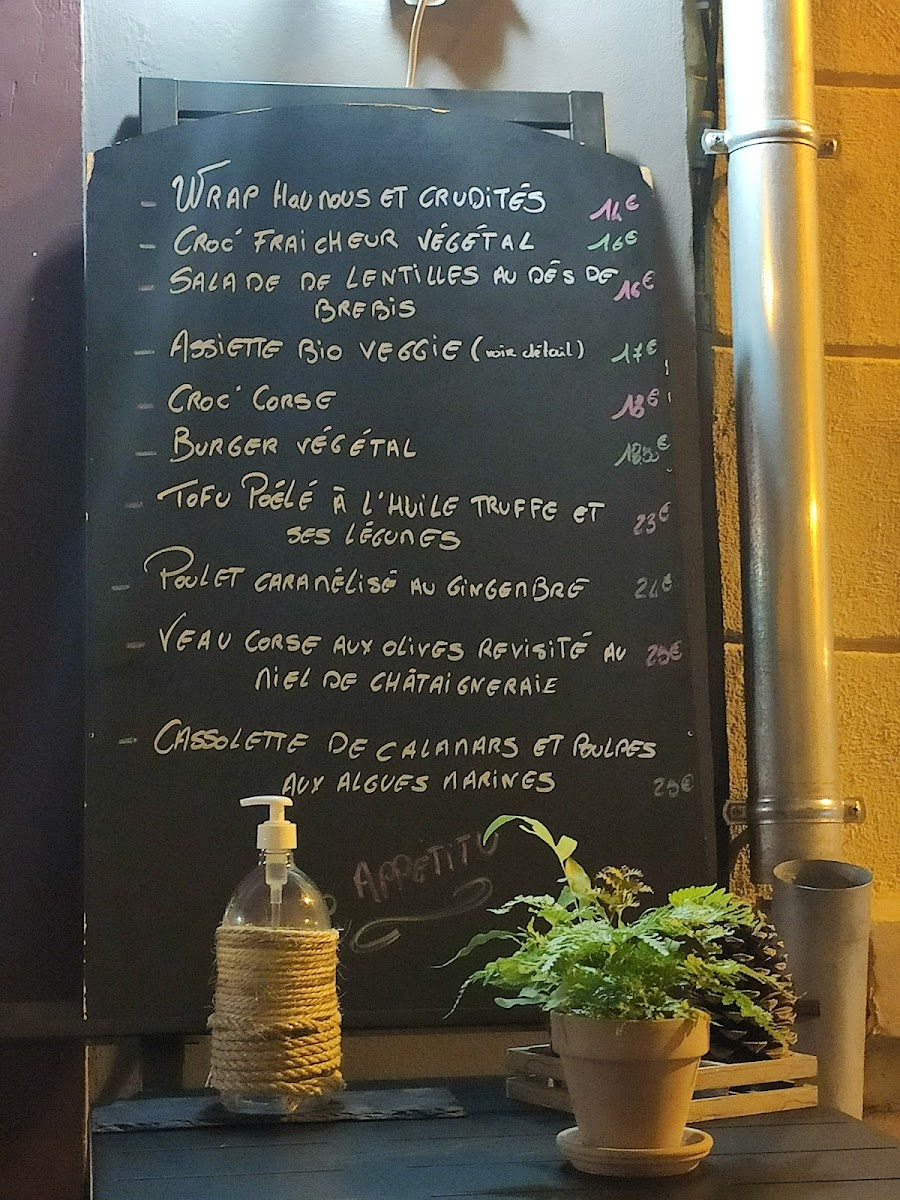 - WRAP HOUMOUS ET CRUDITÉS 14€
- CROC' FRAICHEUR VÉGÉTAL 16€
- SALADE DE LENTILLES AU DÉS DE 16€
BREBIS
- ASSIETTE BIO VEGGIE (voir détail) 17€
- CROC' CORSE 18€
- BURGER VÉGÉTAL 18,50€
- TOFU POÉLÉ À L'HUILE TRUFFE ET 23€
SES LÉGUMES
- POULET CARAMÉLISÉ AU GINGEMBRE 24€
- VEAU CORSE AUX OLIVES REVISITÉ AU 25€
MIEL DE CHÂTAIGNERAIE
- CASSOLETTE DE CALAMARS ET POULPES
AUX ALGUES MARINES 25€
APPETITU